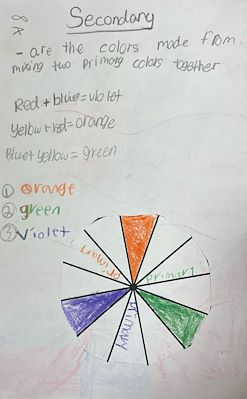 Secondary
- are the colors made from
mixing two primary colors together
Red + blue = violet
yellow + red = orange
Blue + yellow = green
① orange
② green
③ violet
primary
primary
primary